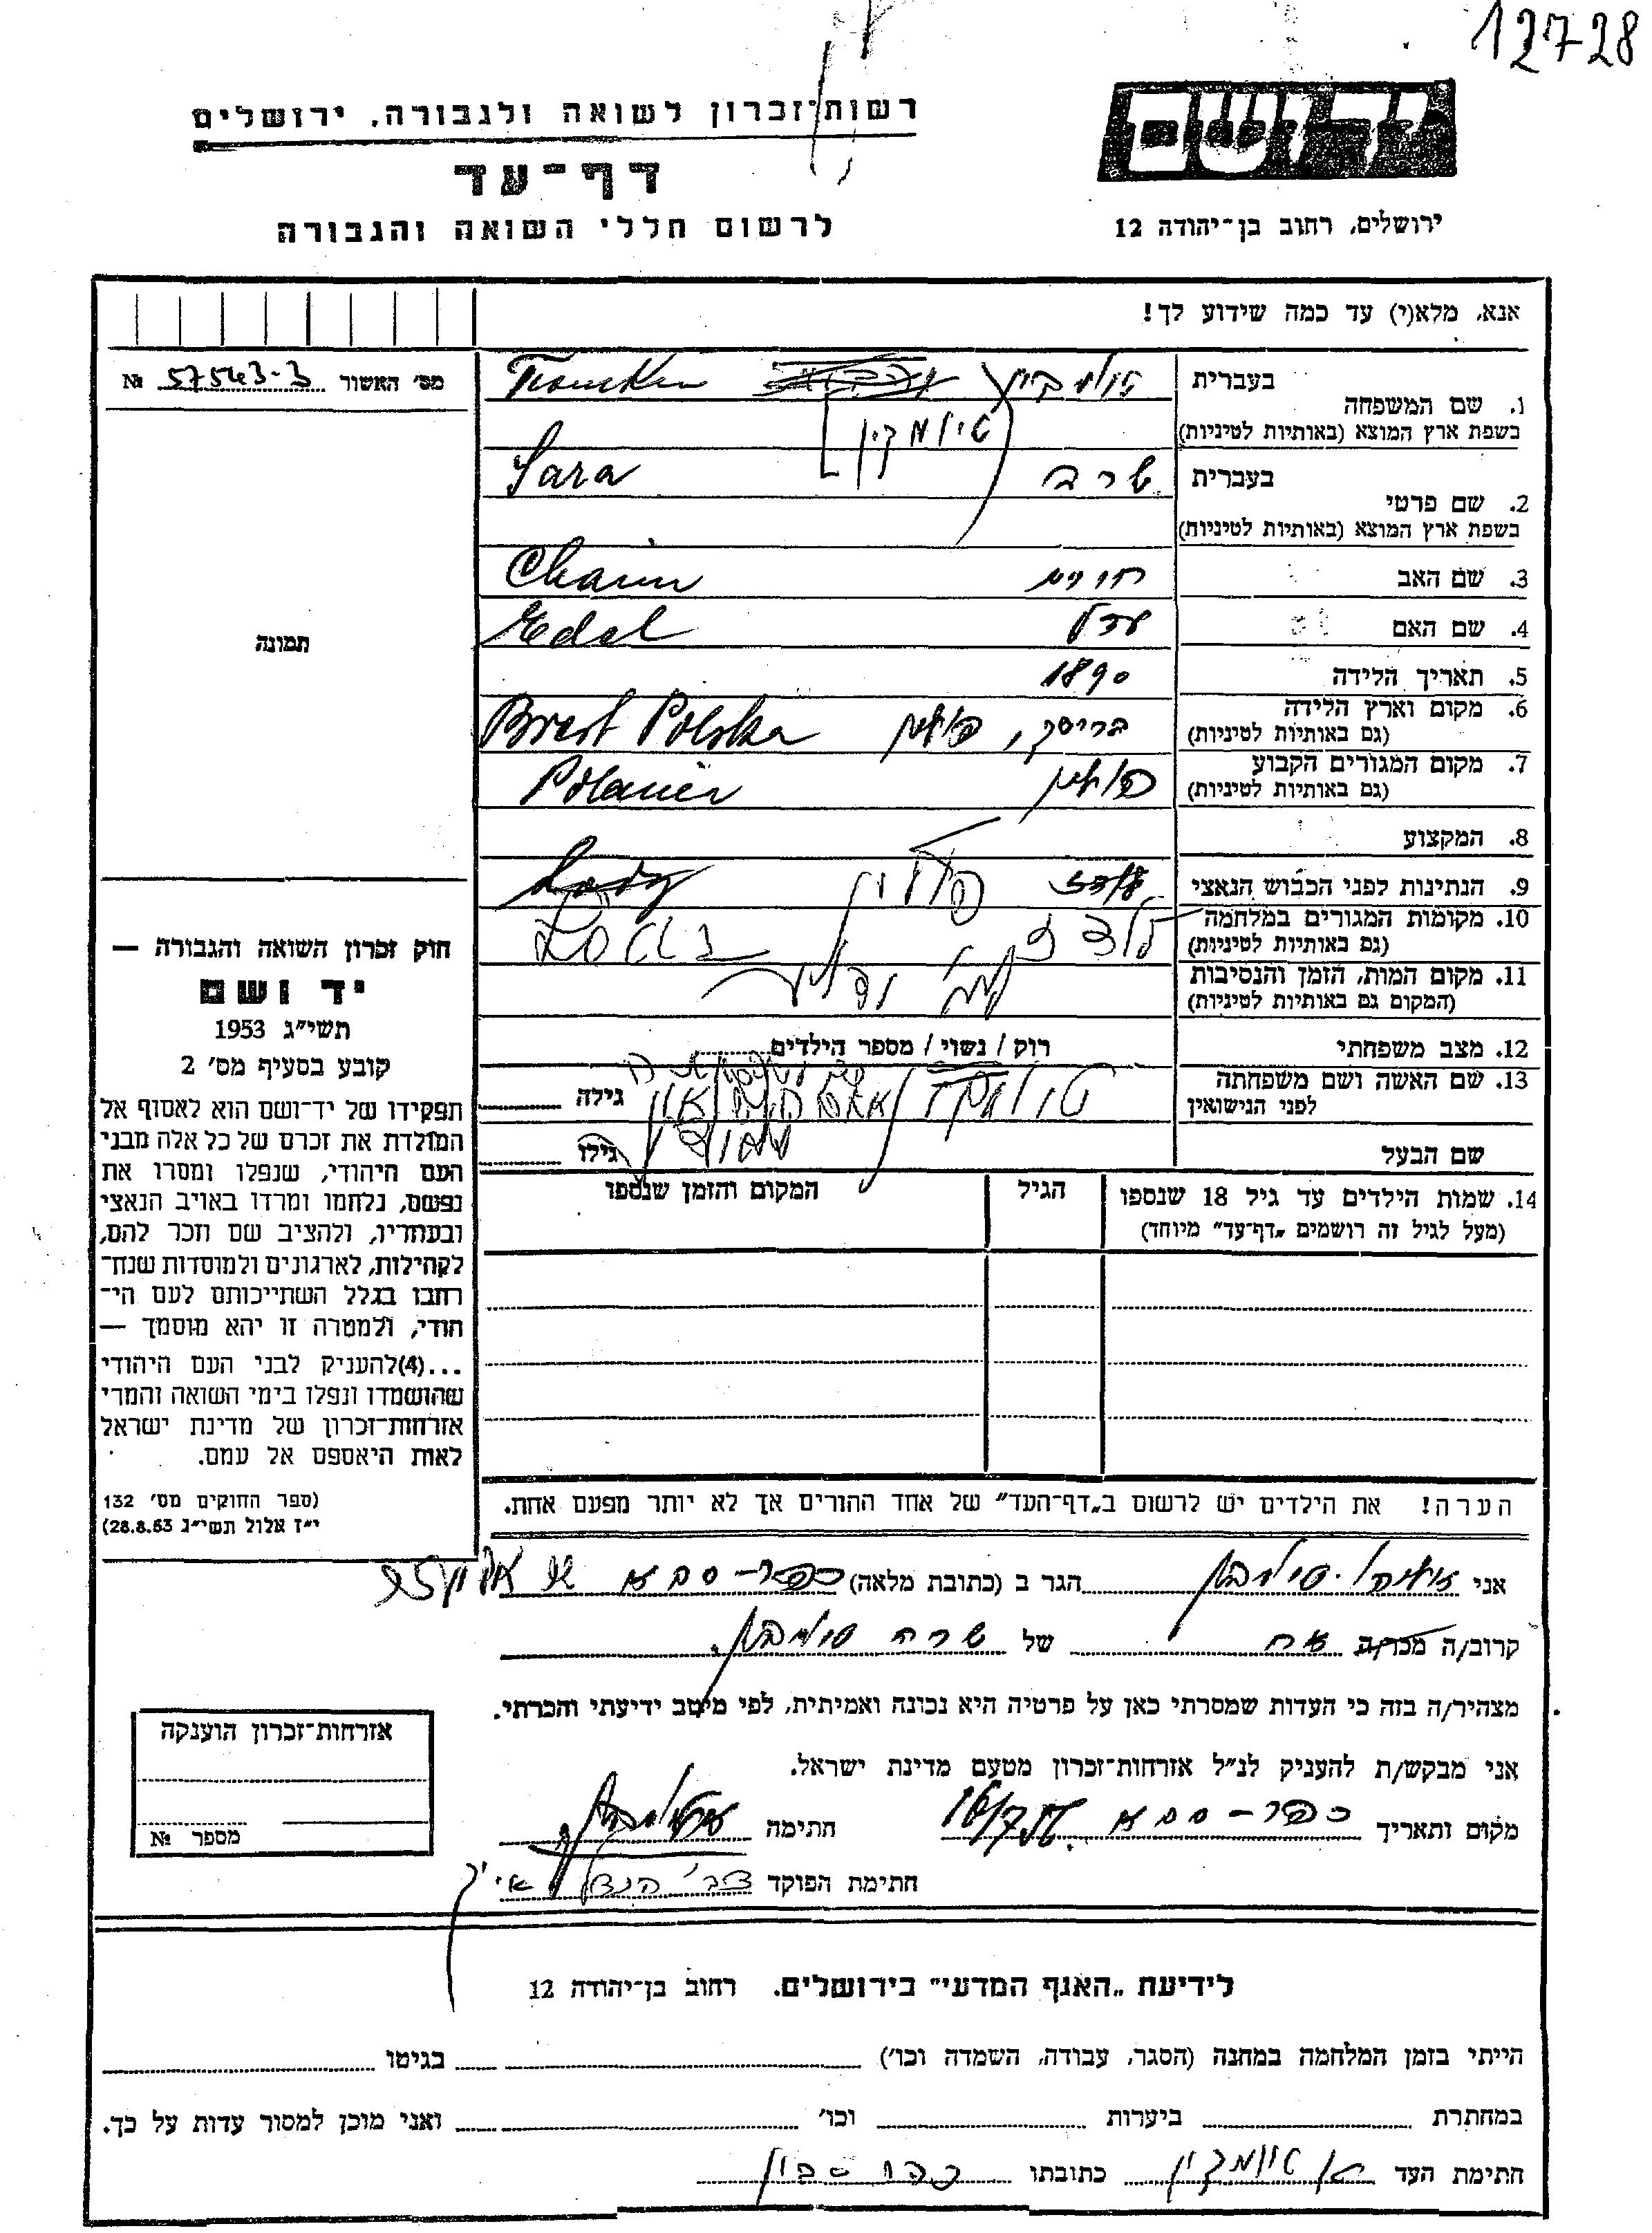 12728
יד ושם
רשות־זכרון לשואה ולגבורה, ירושלים
דף־עד
לרשום חללי השואה והגבורה
ירושלים, רחוב בן־יהודה 12
אנא, מלא(י) עד כמה שידוע לך!
מס׳ האשור № 57543-3
1. שם המשפחה
בעברית
בשפת ארץ המוצא (באותיות לטיניות)
טולמקין
2. שם פרטי
בעברית
בשפת ארץ המוצא (באותיות לטיניות)
שרה Sara
3. שם האב חיים Chaim
4. שם האם עדל Edel
5. תאריך הלידה 1890
6. מקום וארץ הלידה
(גם באותיות לטיניות)
בריסק, פולין Brest Polska
7. מקום המגורים הקבוע
(גם באותיות לטיניות)
פולין
8. המקצוע
9. הנתינות לפני הכבוש הנאצי פולין
10. מקומות המגורים במלחמה
(גם באותיות לטיניות)
לודז
11. מקום המות, הזמן והנסיבות
(המקום גם באותיות לטיניות)
12. מצב משפחתי
רוק / נשוי / מספר הילדים
13. שם האשה ושם משפחתה
לפני הנישואין
גילה
שם הבעל
גילו
14. שמות הילדים עד גיל 18 שנספו
(מעל לגיל זה רושמים „דף־עד” מיוחד)
הגיל
המקום והזמן שנספו
הערה! את הילדים יש לרשום ב„דף־העד” של אחד ההורים אך לא יותר מפעם אחת.
תמונה
חוק זכרון השואה והגבורה —
יד ושם
תשי״ג 1953
קובע בסעיף מס׳ 2
תפקידו של יד־ושם הוא לאסוף אל
המולדת את זכרם של כל אלה מבני
העם היהודי, שנפלו ומסרו את
נפשם, נלחמו ומרדו באויב הנאצי
ובעוזריו, ולהציב שם וזכר להם,
לקהילות, לארגונים ולמוסדות שנח־
רבו בגלל השתייכותם לעם הי־
הודי, ולמטרה זו יהא מוסמך —
...(4)להעניק לבני העם היהודי
שהושמדו ונפלו בימי השואה והמרי
אזרחות־זכרון של מדינת ישראל
לאות היאספם אל עמם.
(ספר החוקים מס׳ 132
י״ז אלול תשי״ג 28.8.53)
אני הגר ב (כתובת מלאה) כפר-סבא
קרוב/ה מכר/ה אח של שרה
מצהיר/ה בזה כי העדות שמסרתי כאן על פרטיה היא נכונה ואמיתית, לפי מיטב ידיעתי והכרתי.
אני מבקש/ת להעניק לנ״ל אזרחות־זכרון מטעם מדינת ישראל.
מקום ותאריך כפר-סבא חתימה
חתימת הפוקד
אזרחות־זכרון הוענקה
מספר №
לידיעת „האגף המדעי” בירושלים. רחוב בן־יהודה 12
הייתי בזמן המלחמה במחנה (הסגר, עבודה, השמדה וכו׳) בגיטו
במחתרת ביערות וכו׳ ואני מוכן למסור עדות על כך.
חתימת העד כתובתו